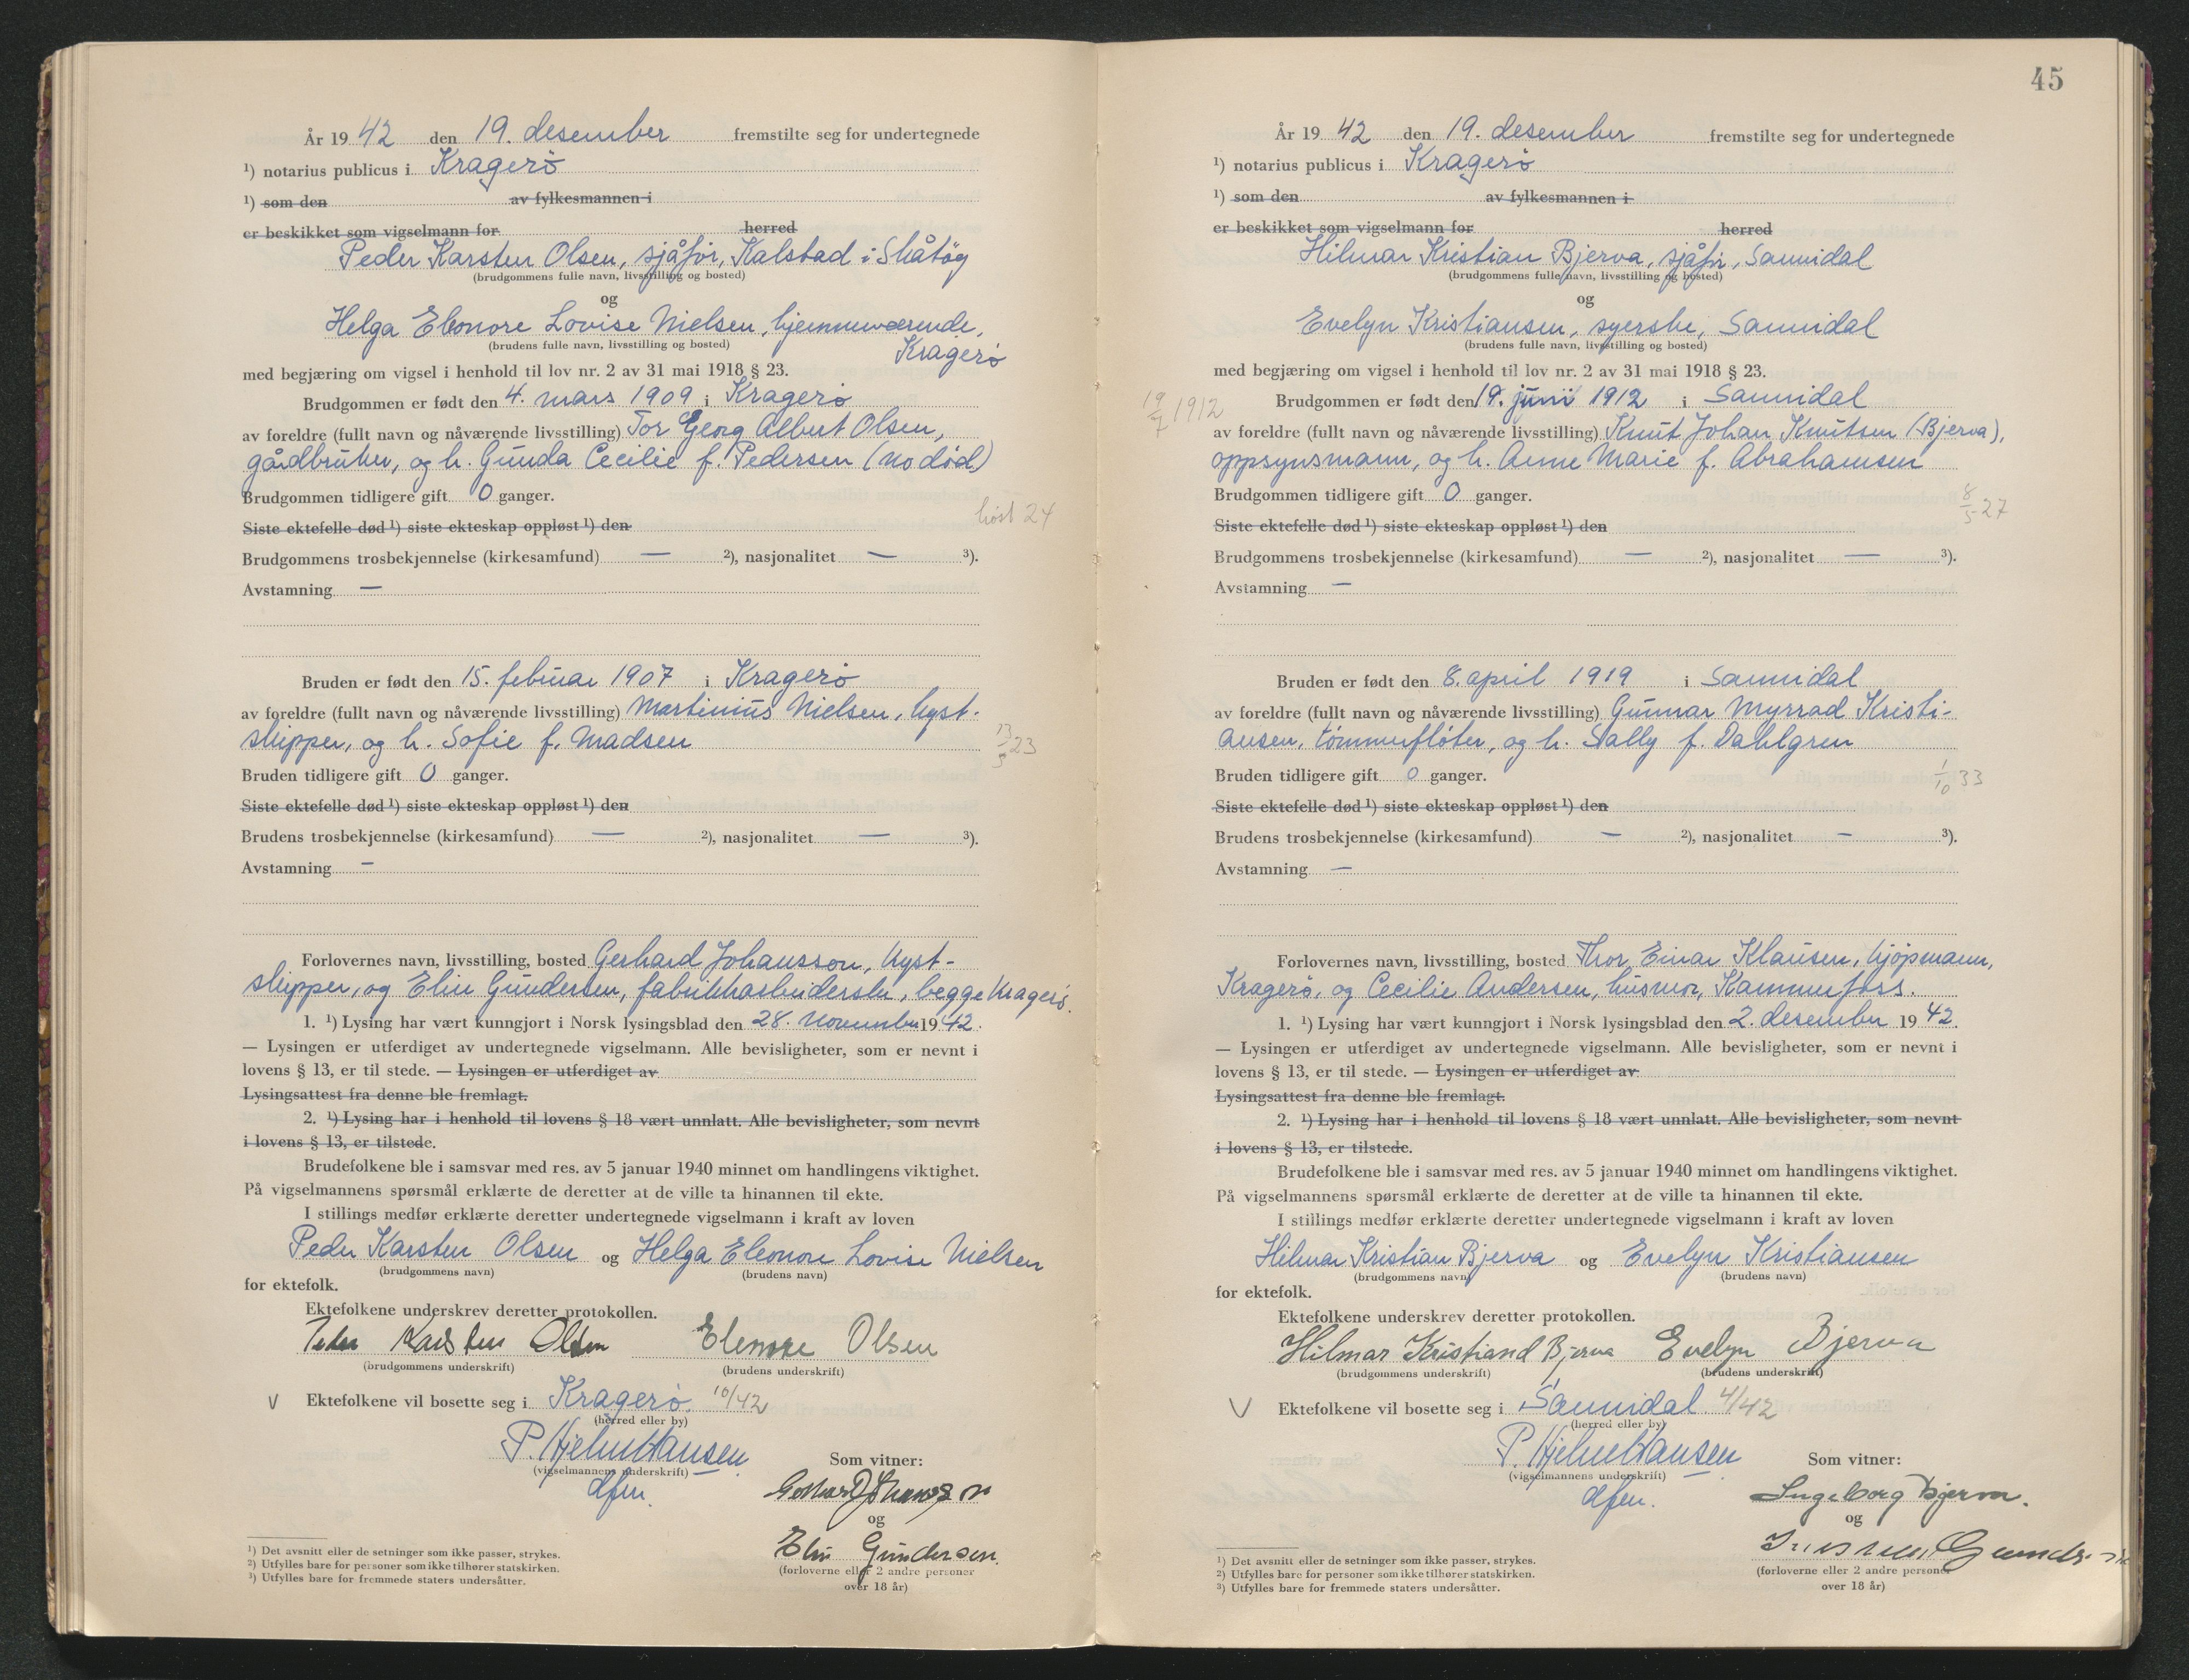 År 1942 den 19. desember fremstilte seg for undertegnede
¹) notarius publicus i Kragerø
¹) som den av fylkesmannen i
er beskikket som vigselmann for herred
Peder Karsten Olsen, sjåfør, Kalstad i Skåtøy
(brudgommens fulle navn, livsstilling og bosted)
og
Helga Eleonore Lovise Nielsen, hjemmeværende,
(brudens fulle navn, livsstilling og bosted)
Kragerø
med begjæring om vigsel i henhold til lov nr. 2 av 31 mai 1918 § 23.
Brudgommen er født den 4. mars 1909 i Kragerø
av foreldre (fullt navn og nåværende livsstilling) Tor Georg Albert Olsen,
gårdbruker, og h. Gunda Cecilie f. Pedersen (no død)
Brudgommen tidligere gift 0 ganger.
høst 24
Siste ektefelle død ¹) siste ekteskap oppløst ¹) den
Brudgommens trosbekjennelse (kirkesamfund) — ²), nasjonalitet — ³).
Avstamning —
Bruden er født den 15. februar 1907 i Kragerø
av foreldre (fullt navn og nåværende livsstilling) Martinius Nielsen, kyst-
skipper, og h. Sofie f. Madsen
13/5 23
Bruden tidligere gift 0 ganger.
Siste ektefelle død ¹) siste ekteskap oppløst ¹) den
Brudens trosbekjennelse (kirkesamfund) — ²), nasjonalitet — ³).
Avstamning —
Forlovernes navn, livsstilling, bosted Gerhard Johansson, kyst-
skipper, og Elin Gundersen, fabrikkarbeiderske, begge Kragerø.
1. ¹) Lysing har vært kunngjort i Norsk lysingsblad den 28. november 1942.
— Lysingen er utferdiget av undertegnede vigselmann. Alle bevisligheter, som er nevnt i
lovens § 13, er til stede. — Lysingen er utferdiget av
Lysingsattest fra denne ble fremlagt.
2. ¹) Lysing har i henhold til lovens § 18 vært unnlatt. Alle bevisligheter, som nevnt
i lovens § 13, er tilstede.
Brudefolkene ble i samsvar med res. av 5 januar 1940 minnet om handlingens viktighet.
På vigselmannens spørsmål erklærte de deretter at de ville ta hinannen til ekte.
I stillings medfør erklærte deretter undertegnede vigselmann i kraft av loven
Peder Karsten Olsen og Helga Eleonore Lovise Nielsen
(brudgommens navn) (brudens navn)
for ektefolk.
Ektefolkene underskrev deretter protokollen.
Peder Karsten Olsen Elenore Olsen
(brudgommens underskrift) (brudens underskrift)
V Ektefolkene vil bosette seg i Kragerø. 10/42
(herred eller by)
P. Hjelm Hansen
(vigselmannens underskrift)
dfm.
Som vitner:
Gerhard Johansson
og
Elin Gundersen
(forloverne eller 2 andre personer
over 18 år)
¹) Det avsnitt eller de setninger som ikke passer, strykes.
²) Utfylles bare for personer som ikke tilhører statskirken.
³) Utfylles bare for fremmede staters undersåtter.
45
År 1942 den 19. desember fremstilte seg for undertegnede
¹) notarius publicus i Kragerø
¹) som den av fylkesmannen i
er beskikket som vigselmann for herred
Hilmar Kristian Bjerva, sjåfør, Sannidal
(brudgommens fulle navn, livsstilling og bosted)
og
Evelyn Kristiansen, syerske, Sannidal
(brudens fulle navn, livsstilling og bosted)
med begjæring om vigsel i henhold til lov nr. 2 av 31 mai 1918 § 23.
19/7 1912
Brudgommen er født den 19. juni 1912 i Sannidal
av foreldre (fullt navn og nåværende livsstilling) Knut Johan Knutsen (Bjerva),
oppsynsmann, og h. Anne Marie f. Abrahamsen
Brudgommen tidligere gift 0 ganger.
8/5 27
Siste ektefelle død ¹) siste ekteskap oppløst ¹) den
Brudgommens trosbekjennelse (kirkesamfund) — ²), nasjonalitet — ³).
Avstamning —
Bruden er født den 8. april 1919 i Sannidal
av foreldre (fullt navn og nåværende livsstilling) Gunnar Myrrad Kristi-
ansen, tømmerfløter, og h. Sally f. Dahlgren
Bruden tidligere gift 0 ganger.
1/10 33
Siste ektefelle død ¹) siste ekteskap oppløst ¹) den
Brudens trosbekjennelse (kirkesamfund) — ²), nasjonalitet — ³).
Avstamning —
Forlovernes navn, livsstilling, bosted Thor Einar Klausen, kjøpmann,
Kragerø, og Cecilie Andersen, husmor, Kammerfoss.
1. ¹) Lysing har vært kunngjort i Norsk lysingsblad den 2. desember 1942.
— Lysingen er utferdiget av undertegnede vigselmann. Alle bevisligheter, som er nevnt i
lovens § 13, er til stede. — Lysingen er utferdiget av
Lysingsattest fra denne ble fremlagt.
2. ¹) Lysing har i henhold til lovens § 18 vært unnlatt. Alle bevisligheter, som nevnt
i lovens § 13, er tilstede.
Brudefolkene ble i samsvar med res. av 5 januar 1940 minnet om handlingens viktighet.
På vigselmannens spørsmål erklærte de deretter at de ville ta hinannen til ekte.
I stillings medfør erklærte deretter undertegnede vigselmann i kraft av loven
Hilmar Kristian Bjerva og Evelyn Kristiansen
(brudgommens navn) (brudens navn)
for ektefolk.
Ektefolkene underskrev deretter protokollen.
Hilmar Kristiand Bjerva Evelyn Bjerva
(brudgommens underskrift) (brudens underskrift)
V Ektefolkene vil bosette seg i Sannidal 4/42
(herred eller by)
P. Hjelm Hansen
(vigselmannens underskrift)
dfm.
Som vitner:
Ingeborg Bjerva.
og
(forloverne eller 2 andre personer
over 18 år)
¹) Det avsnitt eller de setninger som ikke passer, strykes.
²) Utfylles bare for personer som ikke tilhører statskirken.
³) Utfylles bare for fremmede staters undersåtter.